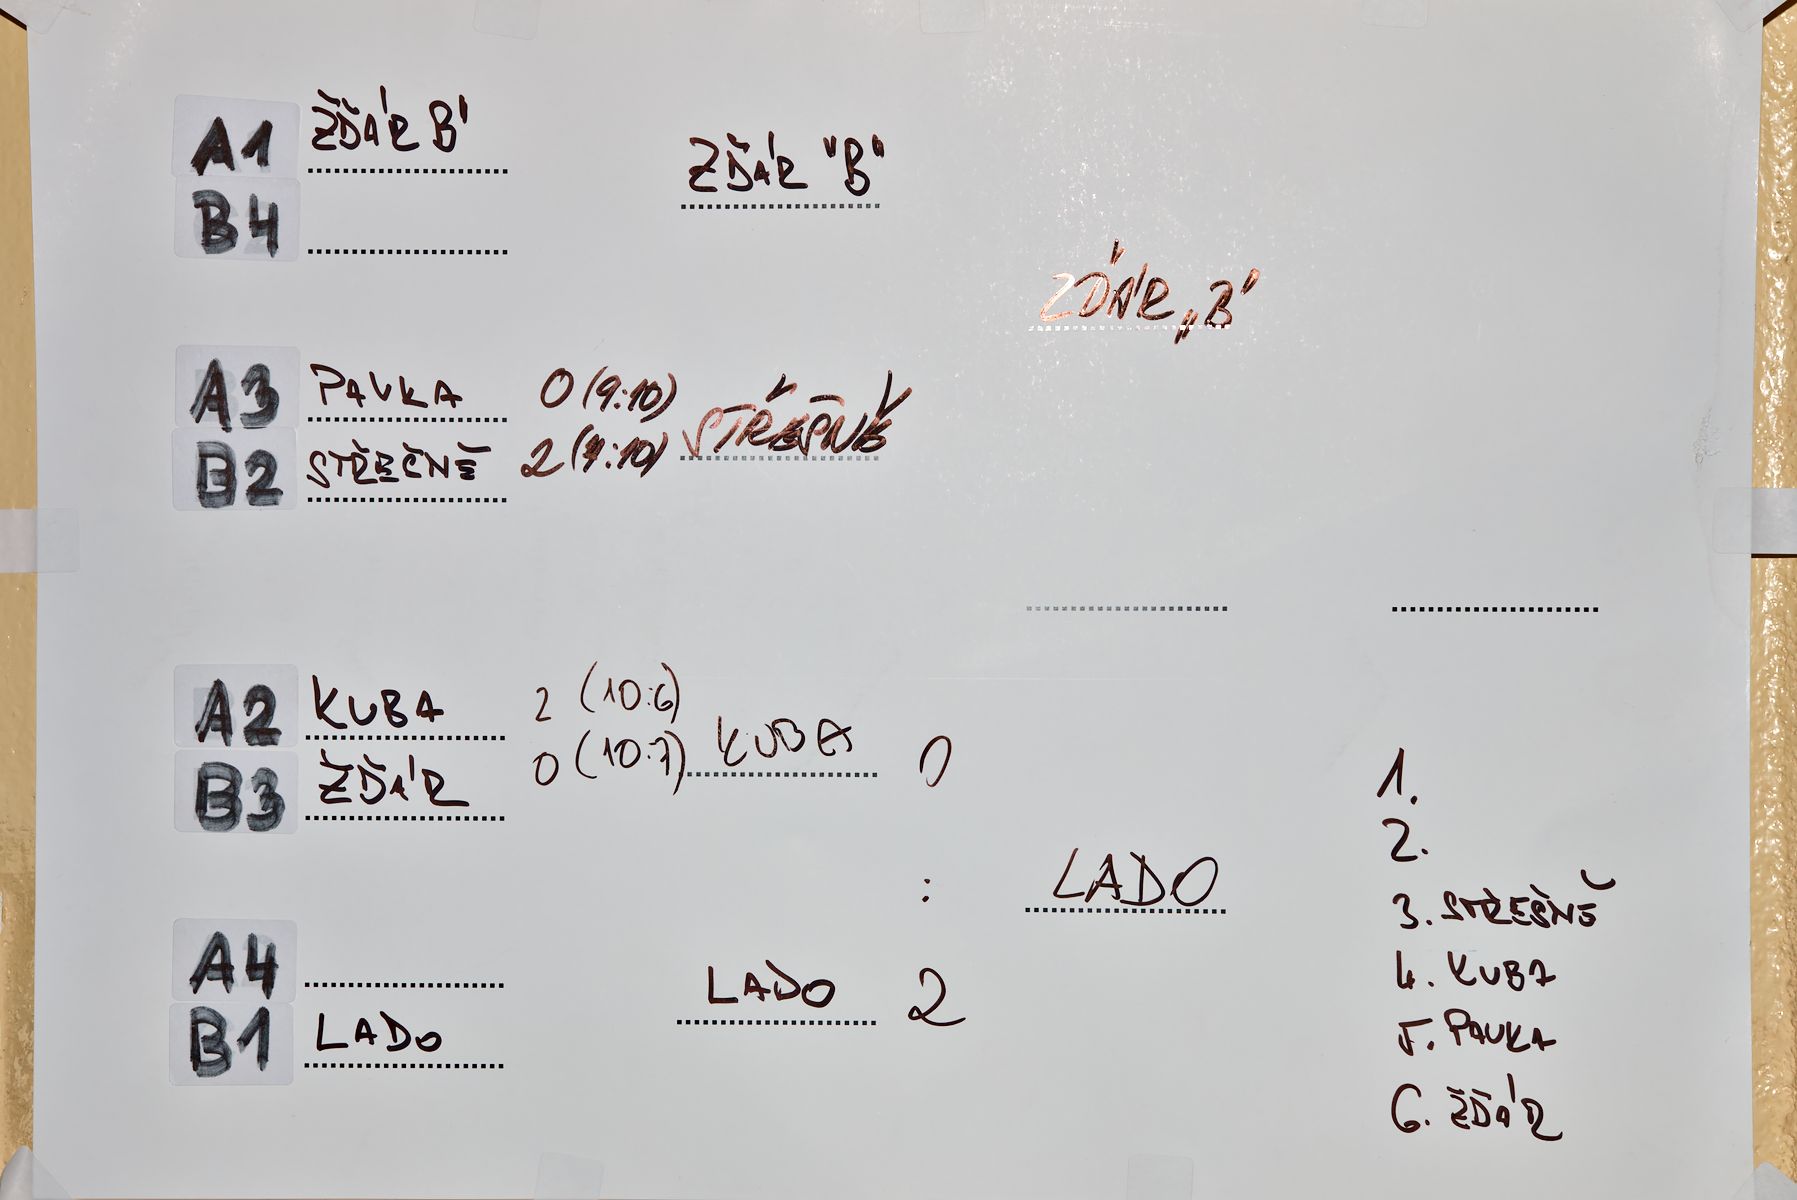 A1 ŽĎÁR B'
ZĎÁR "B"
B4
ZĎÁR „B"
A3 PAVKA 0 (9:10)
STŘEŠNĚ
B2 STŘEČNĚ 2 (7:10)
A2 KUBA 2 (10:6)
KUBA 0
B3 ŽĎÁR 0 (10:7)
1.
2.
: LADO
3. STŘEŠNĚ
A4
4. KUBA
LADO 2
B1 LADO
5. PAVKA
6. ŽĎÁR